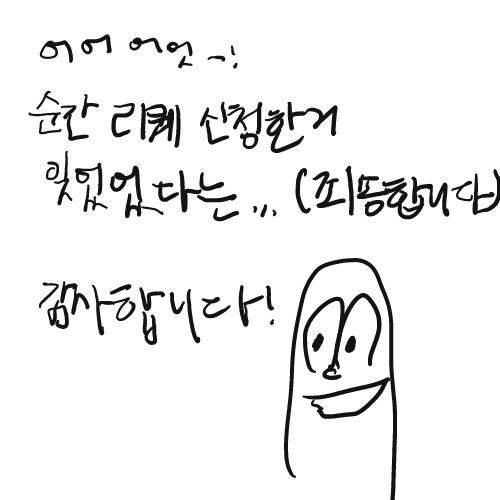 어어 어엇~!
순간 리퀘 신청한거
잊었었다는... (죄송합니다)
감사합니다!